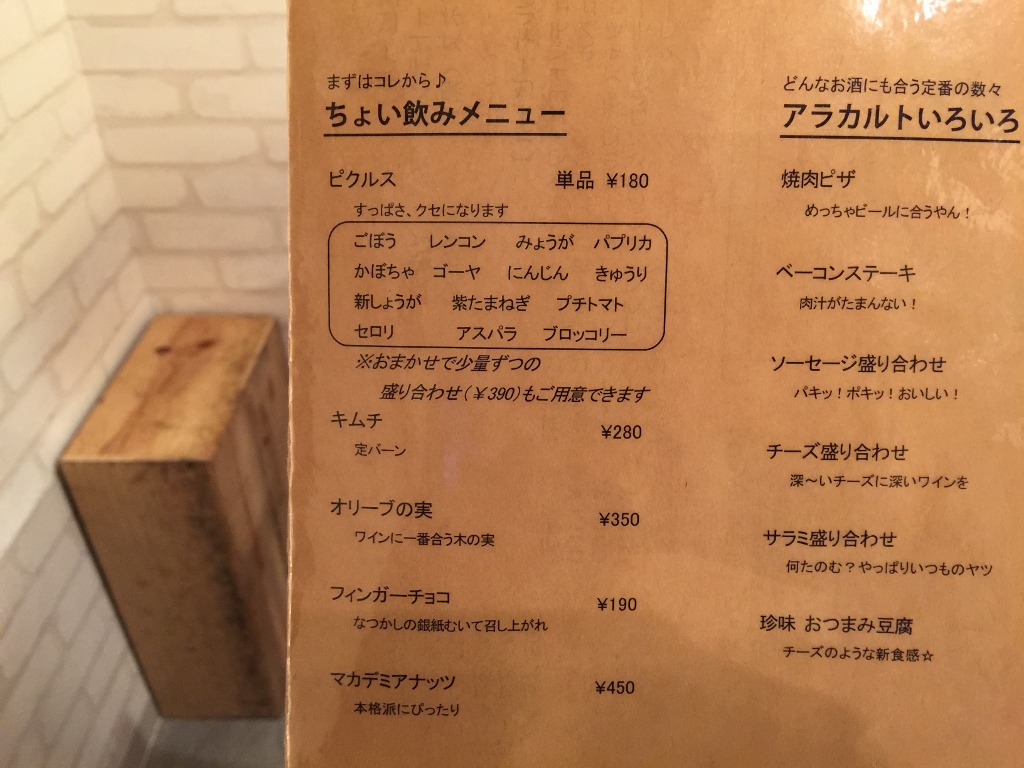 まずはコレから♪
ちょい飲みメニュー
ピクルス 単品 ¥180
すっぱさ、クセになります
ごぼう レンコン みょうが パプリカ
かぼちゃ ゴーヤ にんじん きゅうり
新しょうが 紫たまねぎ プチトマト
セロリ アスパラ ブロッコリー
※おまかせで少量ずつの
盛り合わせ(¥390)もご用意できます
キムチ ¥280
定バーン
オリーブの実 ¥350
ワインに一番合う木の実
フィンガーチョコ ¥190
なつかしの銀紙むいて召し上がれ
マカデミアナッツ ¥450
本格派にぴったり
どんなお酒にも合う定番の数々
アラカルトいろいろ
焼肉ピザ
めっちゃビールに合うやん!
ベーコンステーキ
肉汁がたまんない!
ソーセージ盛り合わせ
パキッ!ポキッ!おいしい!
チーズ盛り合わせ
深~いチーズに深いワインを
サラミ盛り合わせ
何たのむ?やっぱりいつものヤツ
珍味 おつまみ豆腐
チーズのような新食感☆